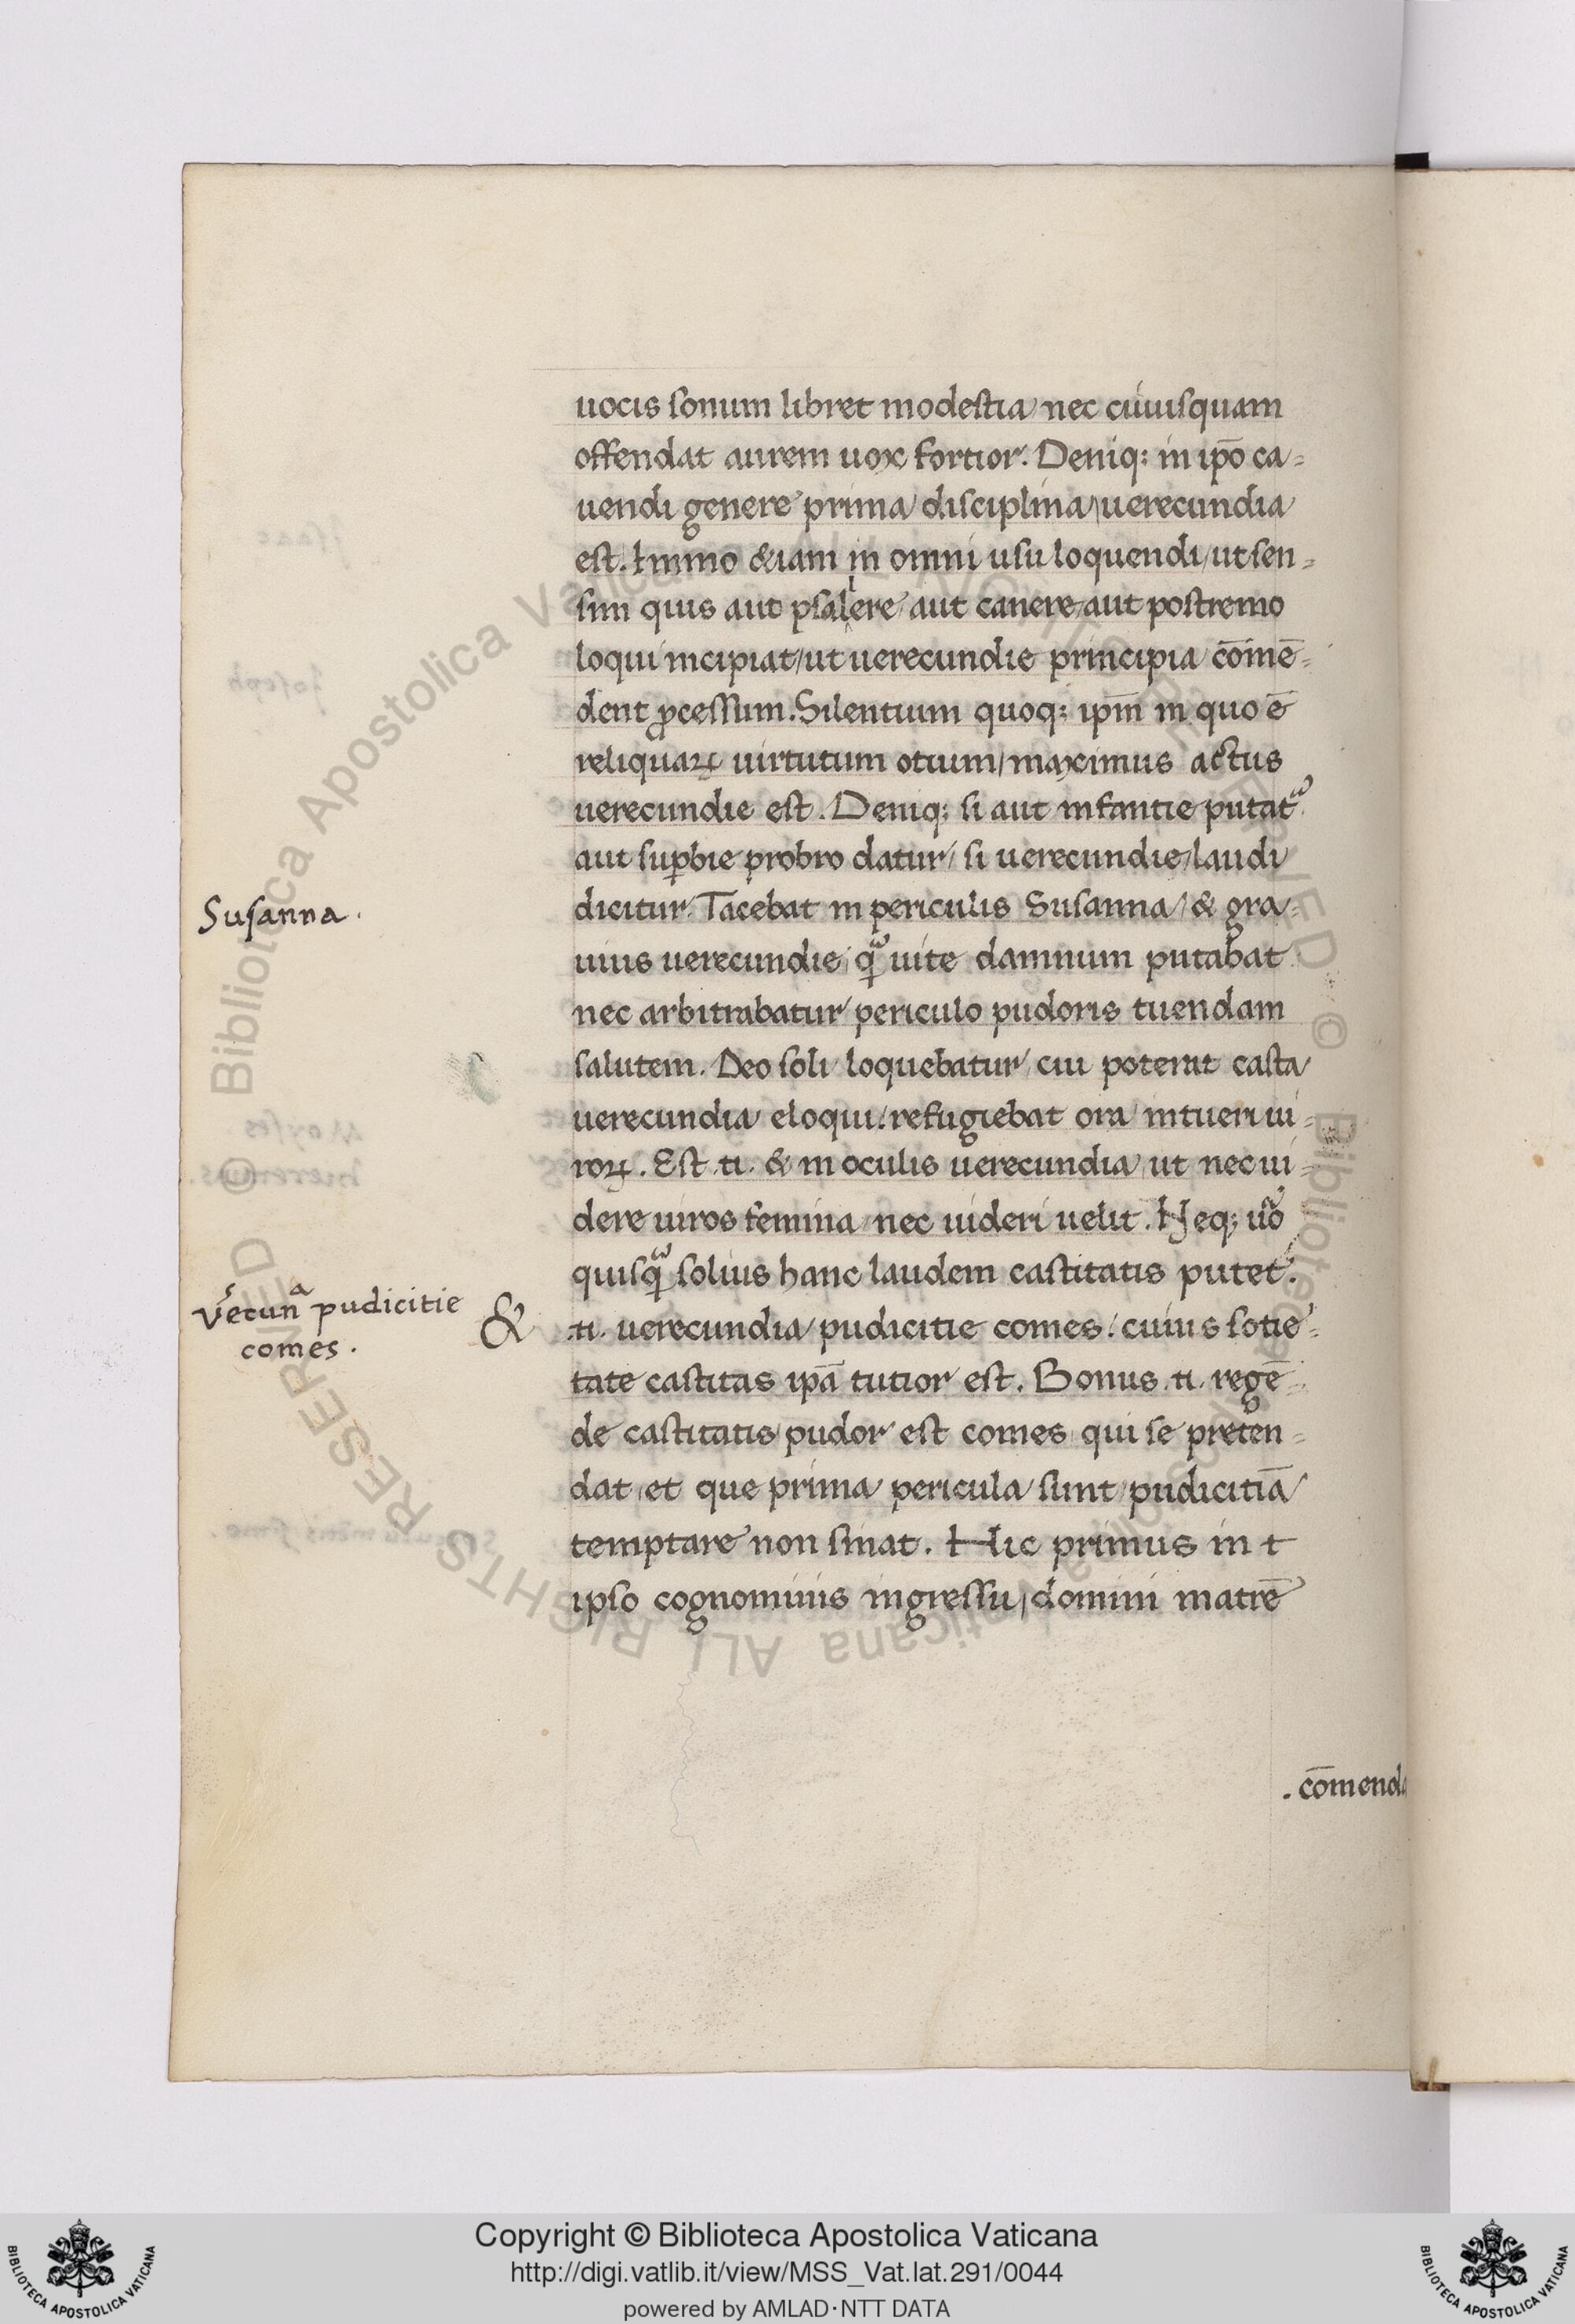 uocis sonum libret modestia/ nec cuiusquam
offendat aurem uox fortior. Deniq; in ip̄o ca=
uendi genere prima disciplina/ uerecundia
est. Immo &iam in omni usu loquendi/ ut sen=
sim quis aut psallere/ aut canere/ aut postremo
loqui incipiat/ ut uerecundie principia cōmē=
dent ꝓcessum. Silentium quoq; ip̄m in quo ē
reliquaꝝ uirtutum otium/ maximus actus
uerecundie est. Deniq; si aut infantie putat᷑
aut suꝑbie probro datur/ si uerecundie/ laudi
dicitur. Tacebat in periculis Susanna/ & gra=
uius uerecundie/ qᷓ uite damnum putabat
nec arbitrabatur/ periculo pudoris tuendam
salutem. Deo soli loquebatur/ cui poterat casta
uerecundia eloqui/ refugiebat ora intueri ui=
roꝝ. Est .n. & in oculis uerecundia/ ut nec ui=
dere uiros femina/ nec uideri uelit. Neq; uº
quisqᷓ solius hanc laudem castitatis putet.
Susanna.
Vecunᵃ pudicitie
comes.
& .n. uerecundia/ pudicitie comes/ cuius sotie=
tate castitas ip̄a tutior est. Bonus .n. regē=
de castitatis pudor est comes/ qui se preten=
dat/ et que prima pericula sunt/ pudicitiā
temptare non sinat. Hic primus in t
ipso cognominis ingressu/ domini matrē
. cōmenda
Copyright © Biblioteca Apostolica Vaticana
http://digi.vatlib.it/view/MSS_Vat.lat.291/0044
powered by AMLAD·NTT DATA
BIBLIOTECA APOSTOLICA VATICANA
BIBLIOTECA APOSTOLICA VATICANA
© Biblioteca Apostolica Vaticana ALL RIGHTS RESERVED
© Biblioteca Apostolica Vaticana ALL RIGHTS RESERVED